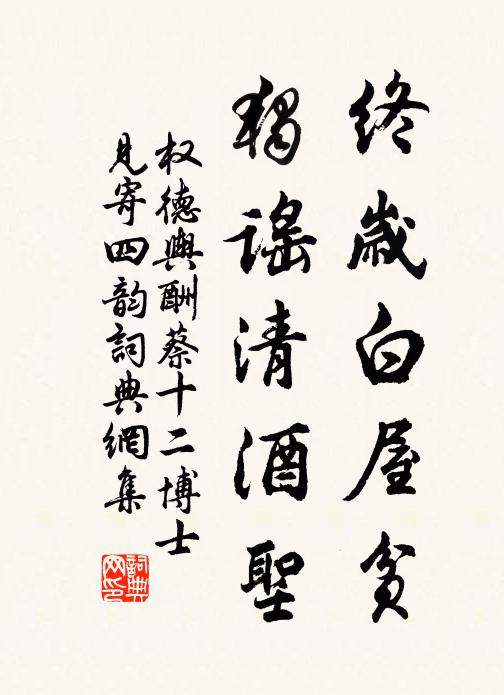 終歲白屋貧
獨謡清酒聖
权德輿酬蔡十二博士
見寄四韵詞典網集
詞典网印